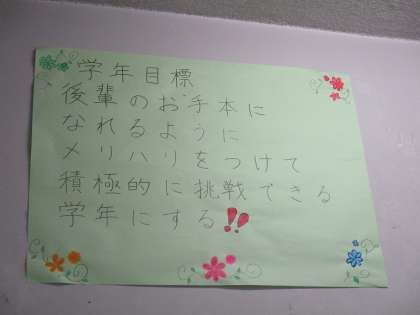 学年目標
後輩のお手本に
なれるように
メリハリをつけて
積極的に挑戦できる
学年にする!!